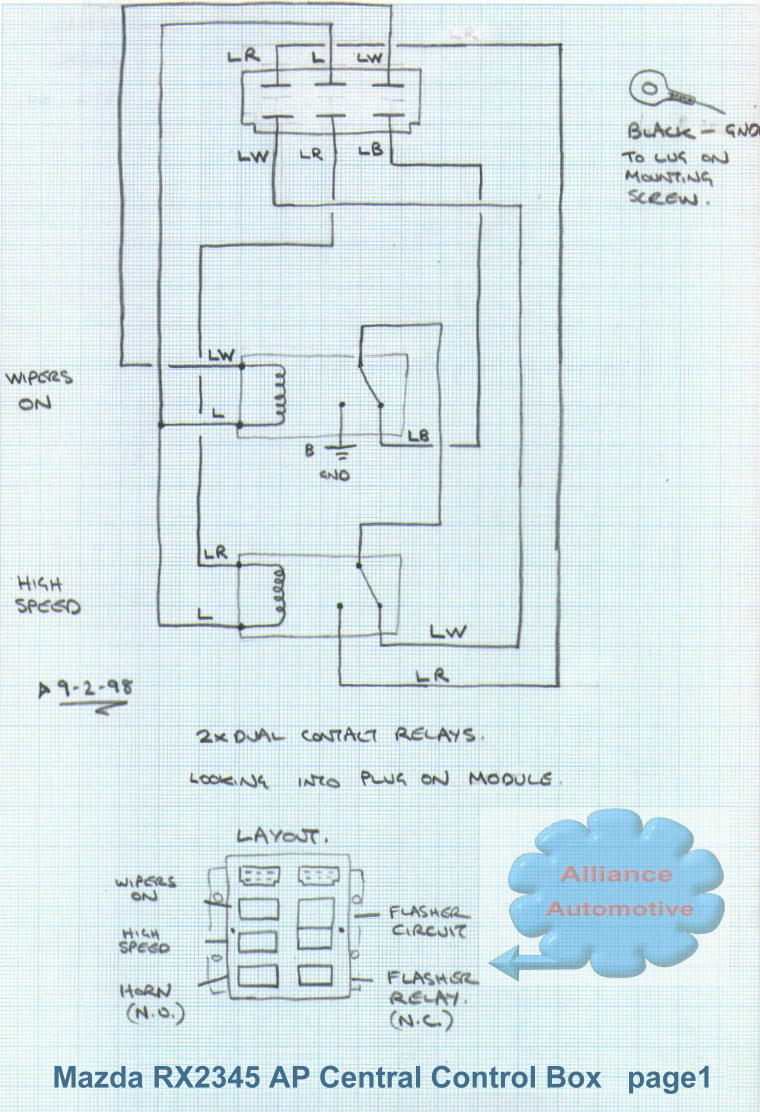 LR L LW
LW LR LB
BLACK — GND
TO LUG ON
MOUNTING
SCREW.
WIPERS
ON
LW
L
LB
B
GND
HIGH
SPEED
LR
L
LW
LR
9-2-98
2x DUAL CONTACT RELAYS.
LOOKING INTO PLUG ON MODULE.
LAYOUT.
WIPERS
ON
HIGH
SPEED
HORN
(N.O.)
FLASHER
CIRCUIT
FLASHER
RELAY.
(N.C.)
Alliance
Automotive
Mazda RX2345 AP Central Control Box page1